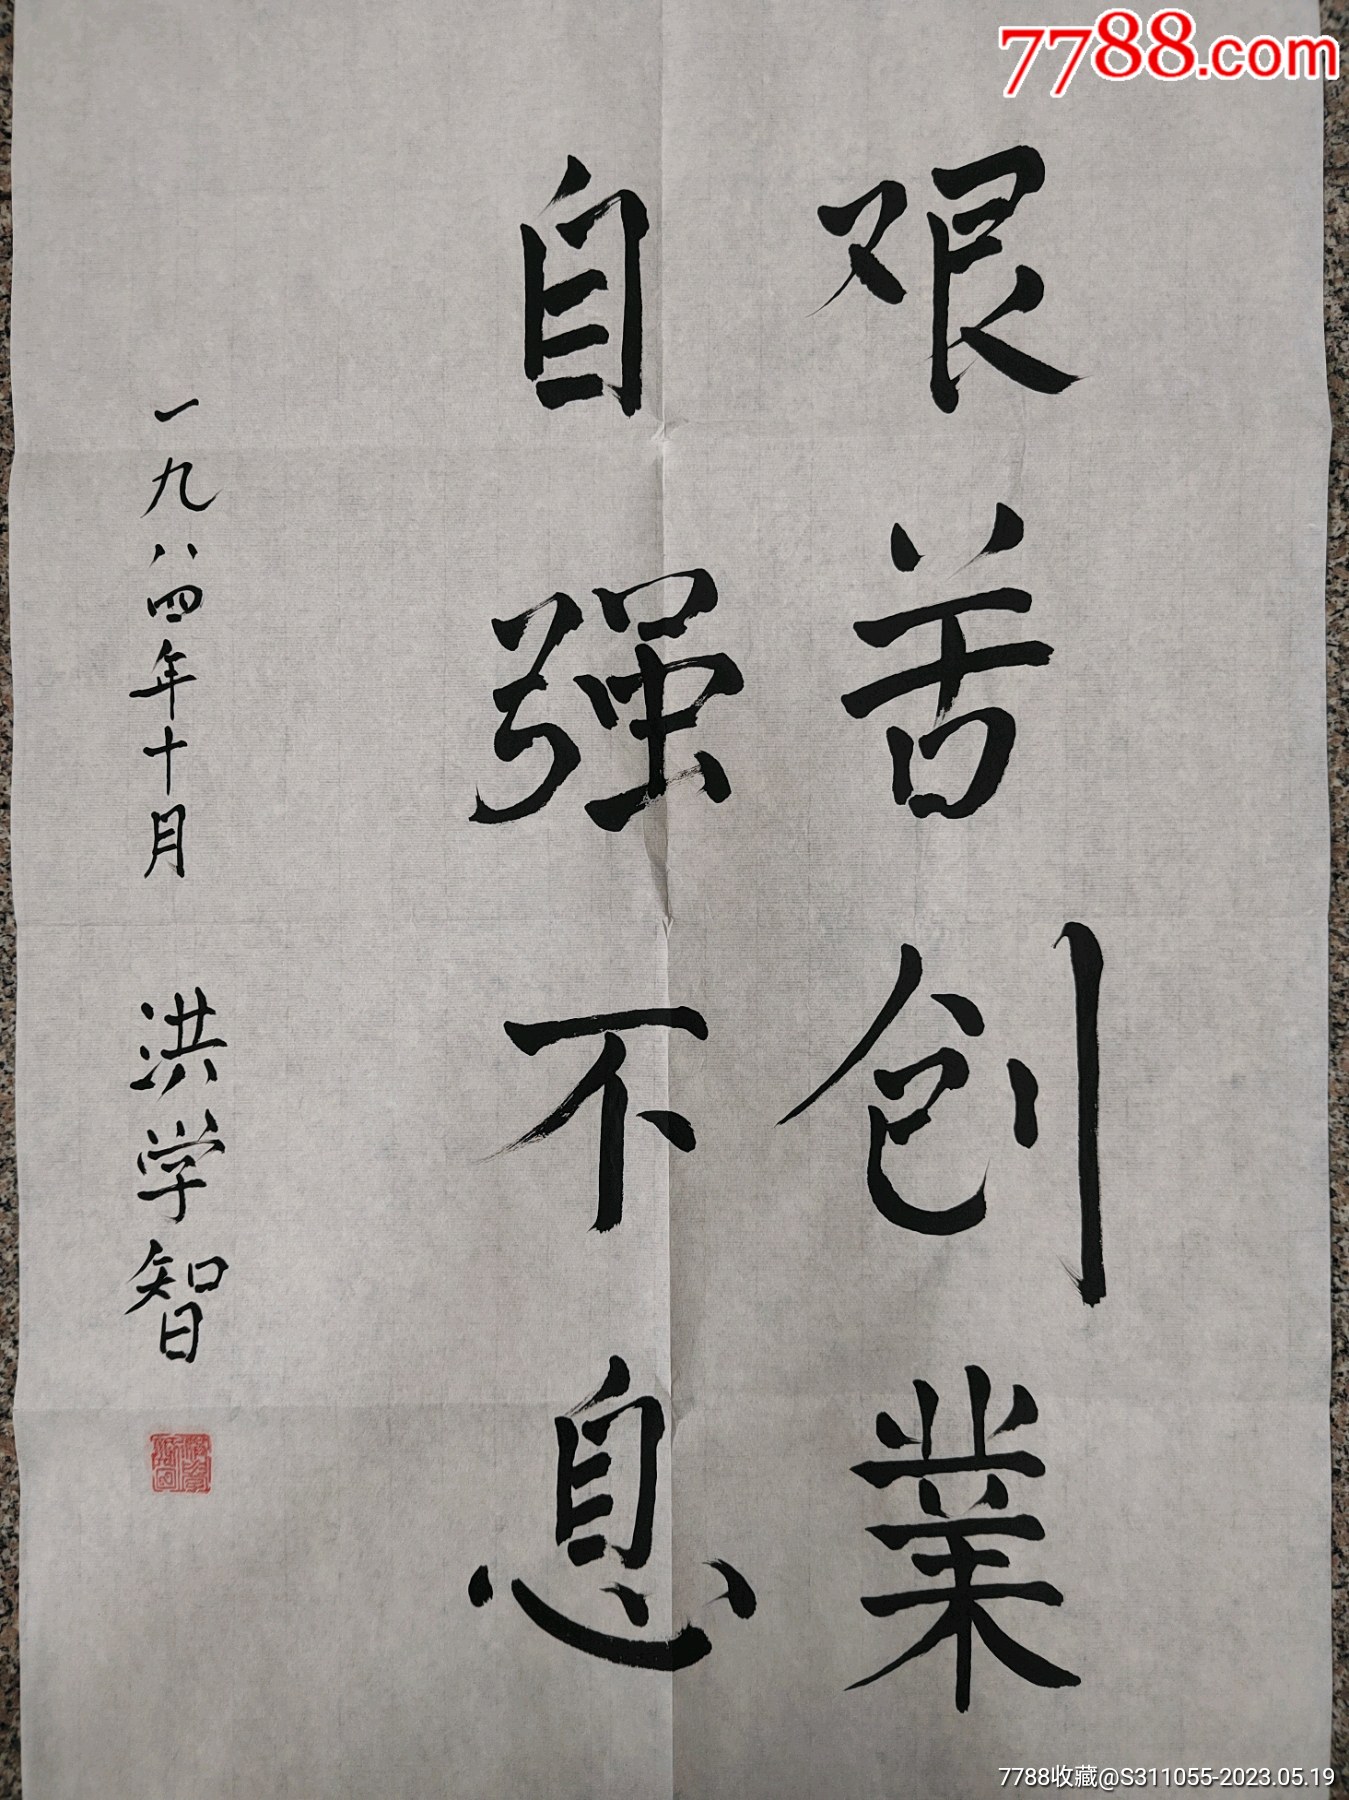 7788.com
艰苦创業
自强不息
一九八四年十月 洪学智
7788收藏@S311055-2023.05.19